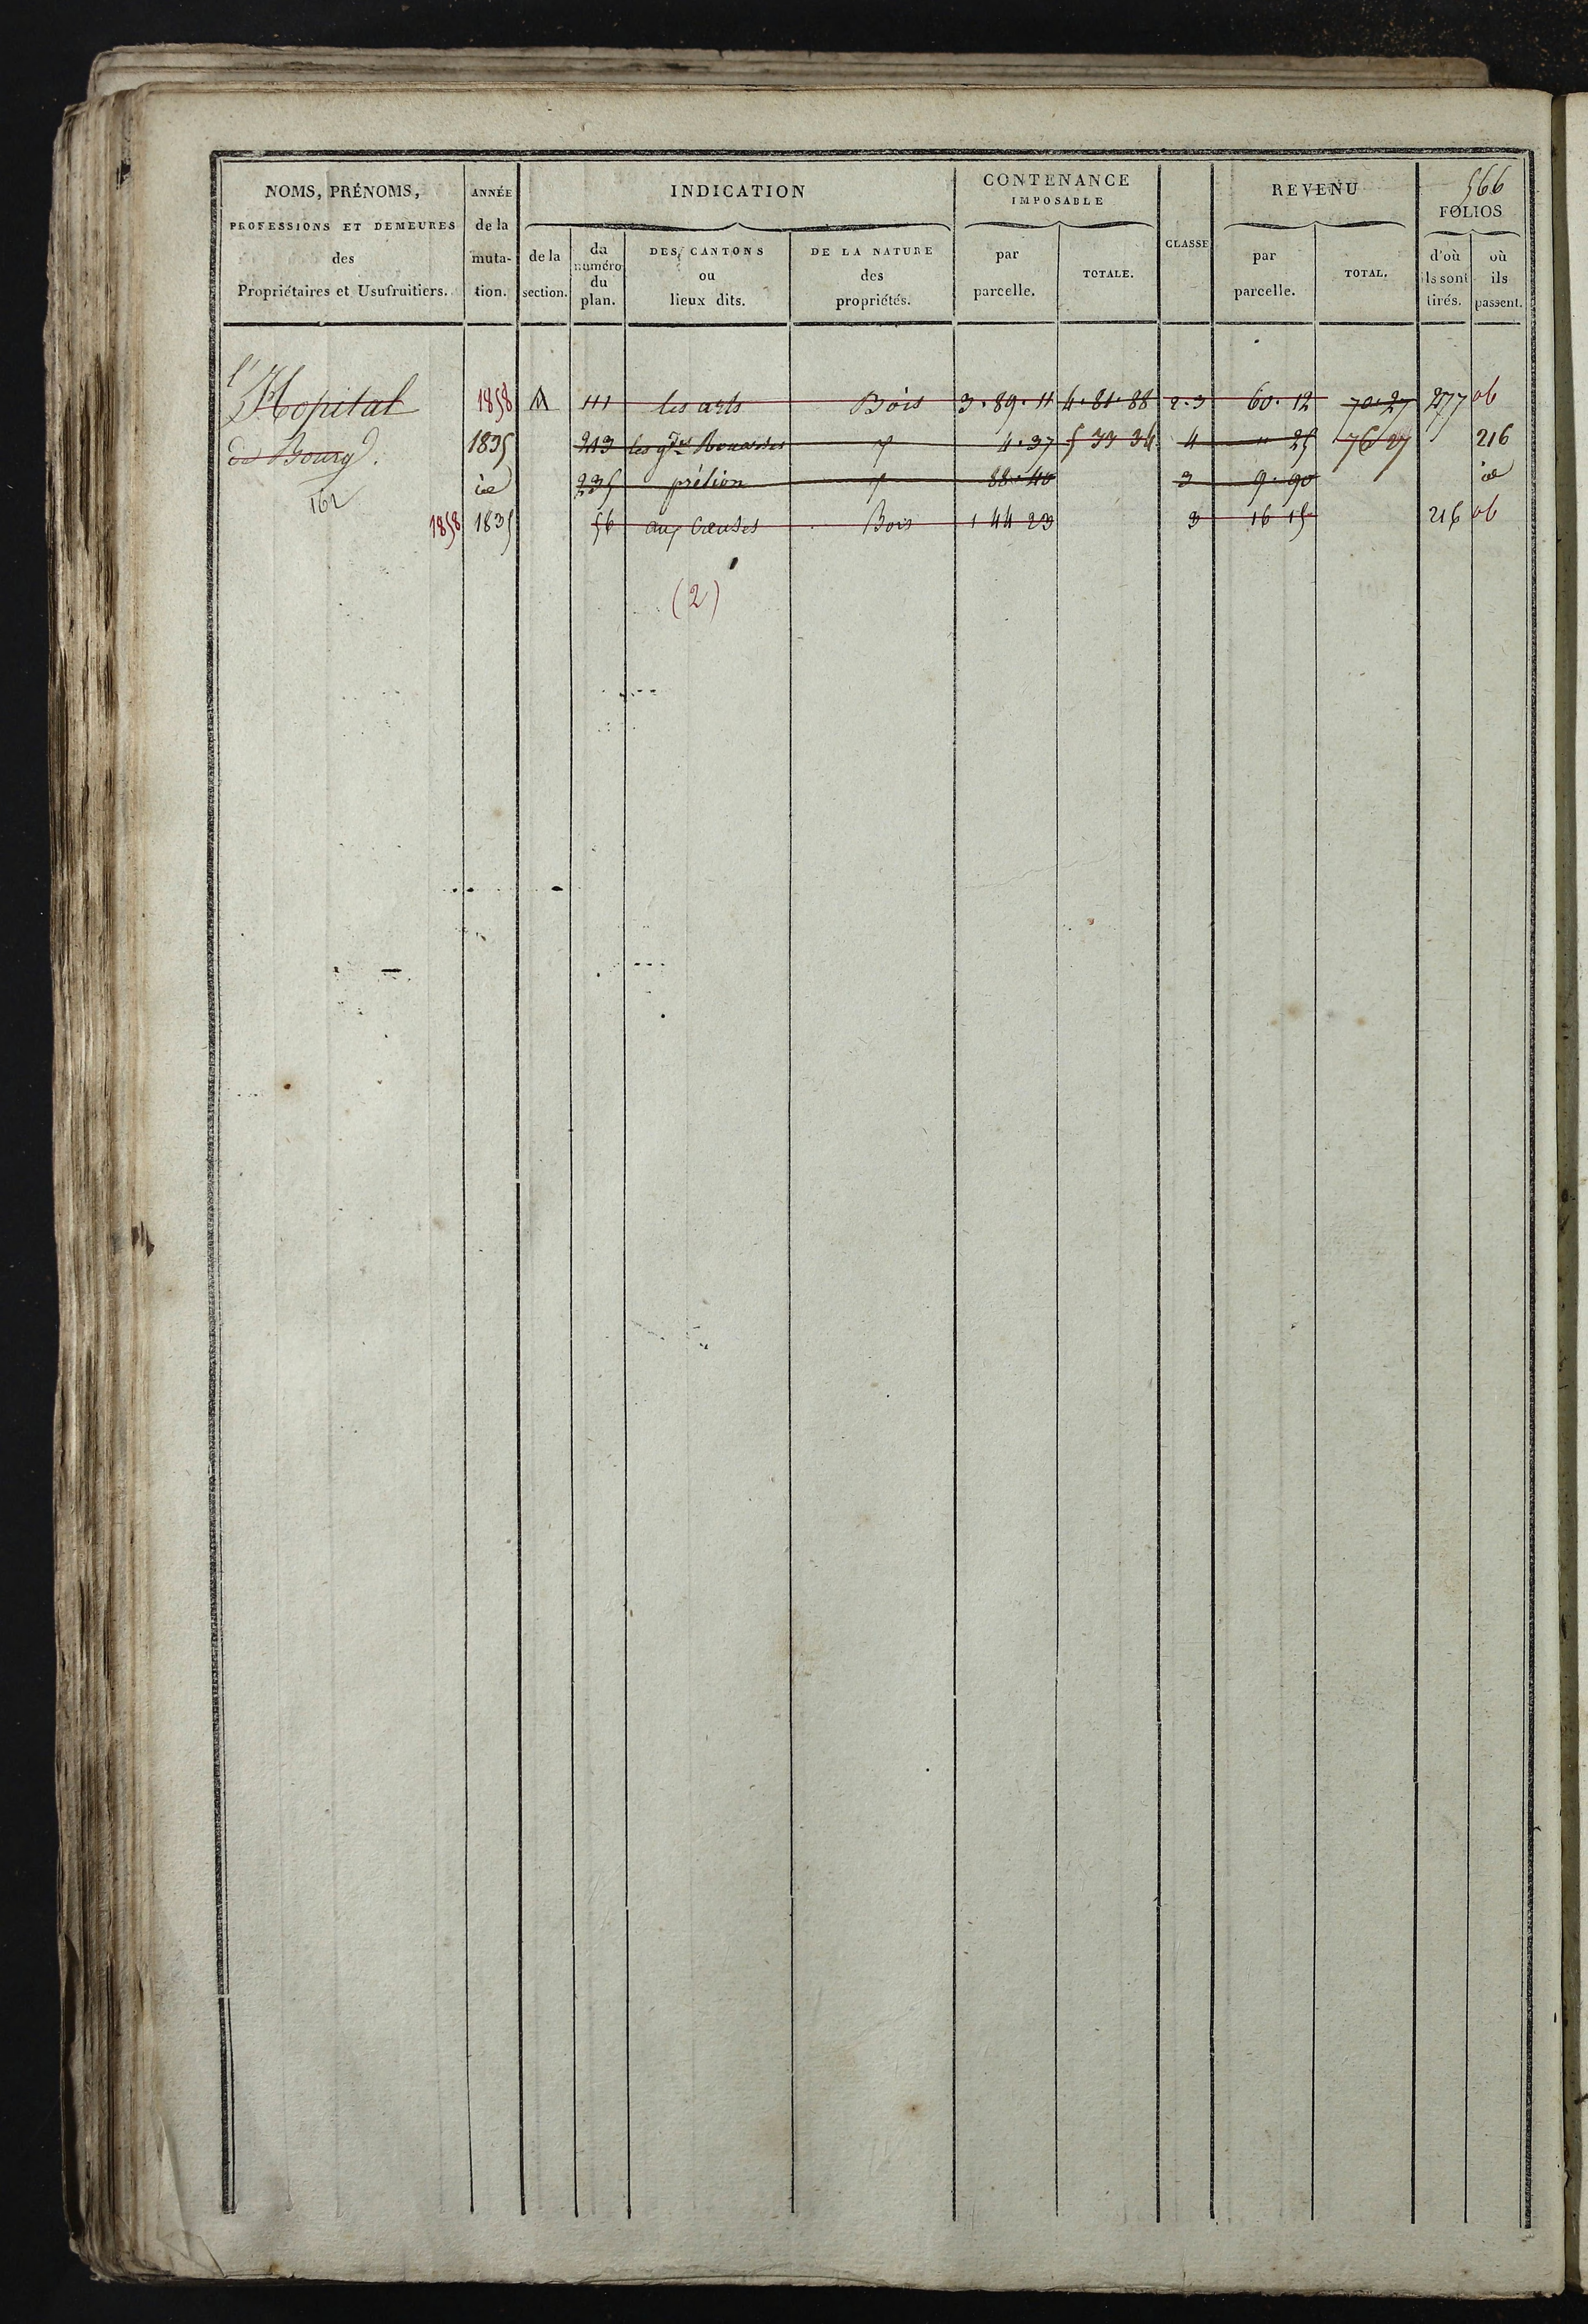 566
NOMS, PRÉNOMS, PROFESSIONS ET DEMEURES des Propriétaires et Usufruitiers.
ANNÉE de la muta- tion.
INDICATION
de la section.
du numéro du plan.
DES CANTONS ou lieux dits.
DE LA NATURE des propriétés.
CONTENANCE IMPOSABLE
par parcelle.
TOTALE.
CLASSE
REVENU
par parcelle.
TOTAL.
FOLIOS
d'où ils sont tirés.
où ils passent.
l'Hopital 1858 A 111 les arts Bois 3.89.11 4.81.88 2.3 60.12 70.27 277 ob
de Bourg. 1835 213 les gdes 4.37 5 33 34 4 " 25 76 27 216
162 id 235 prélion 88.40 3 9.90 id
1858 1835 56 aux Creuses Bois 1 44 23 3 16 15 216 ob
(2)